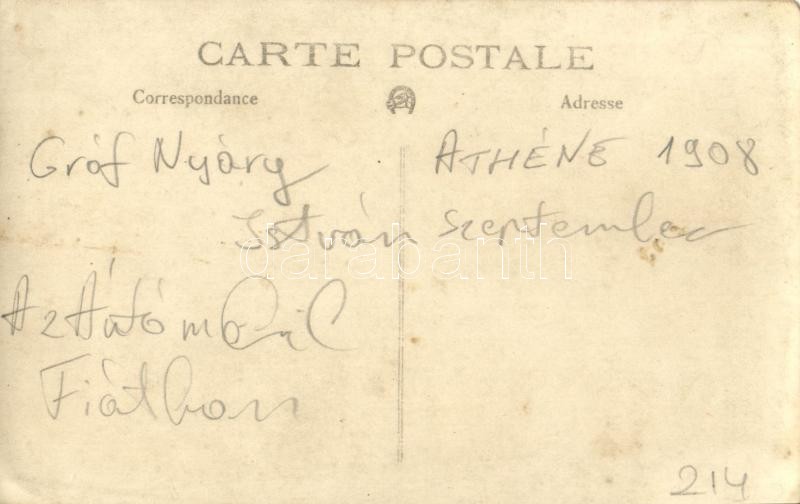 CARTE POSTALE
Correspondance
Adresse
Gróf Nyáry
István
Az Áutómobil
Fiátban
ATHÉNE 1908
Szeptember
darabanth
214